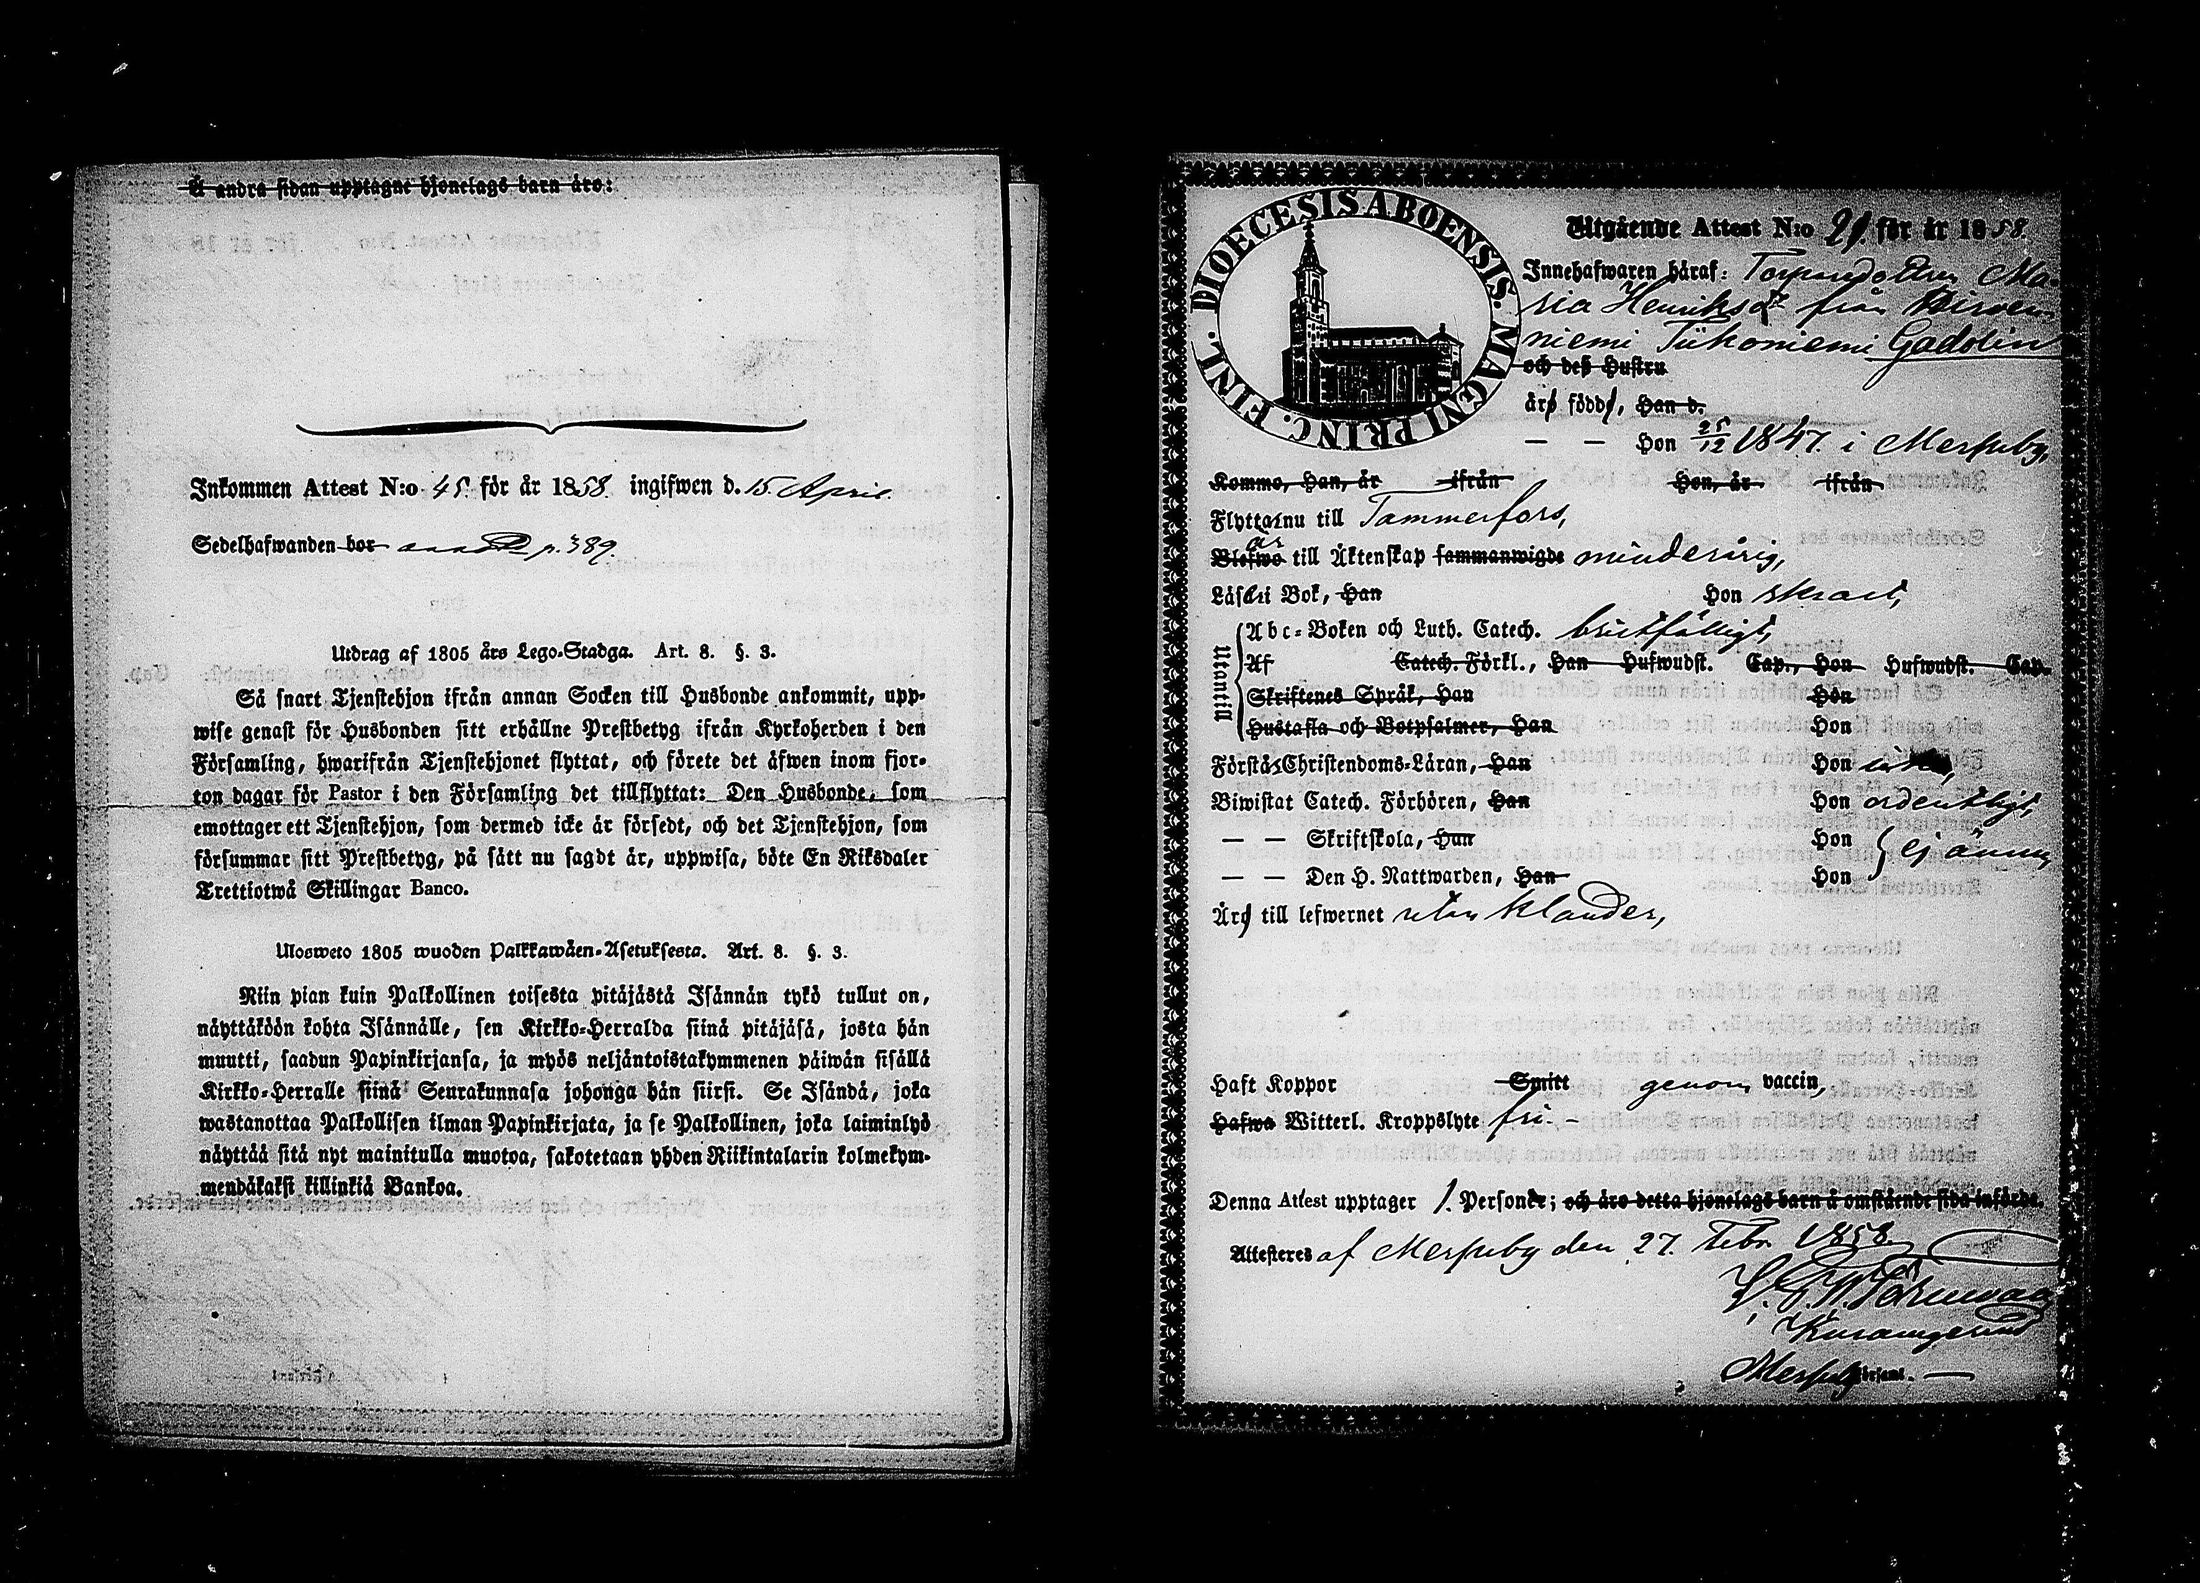 Å andra sidan upptagne hjonelags barn äro:
Inkommen Attest N:o 45 för år 1858. ingifwen d. 15 April
Sedelhafwanden bor p. 389.
Utdrag af 1805 års Lego-Stadga. Art. 8. §. 3.
Så snart Tjenstehjon ifrån annan Socken till Husbonde ankommit, upp-
wise genast för Husbonden sitt erhållne Prestbetyg ifrån Kyrkoherden i den
Församling, hwarifrån Tjenstehjonet flyttat, och förete det äfwen inom fjor-
ton dagar för Pastor i den Församling det tillflyttat: Den Husbonde, som
emottager ett Tjenstehjon, som dermed icke är försedt, och det Tjenstehjon, som
försummar sitt Prestbetyg, på sätt nu sagdt är, uppwisa, böte En Riksdaler
Trettiotwå Skillingar Banco.
Ulosweto 1805 wuoden Palkkawäen-Asetuksesta. Art. 8. §. 3.
Niin pian kuin Palkollinen toisesta pitäjästä Isännän tykö tullut on,
näyttäköön kohta Isännälle, sen Kirkko-Herralda siinä pitäjäsä, josta hän
muutti, saadun Papinkirjansa, ja myös neljäntoistakymmenen päiwän sisällä
Kirkko-Herralle siinä Seurakunnasa johonga hän siirsi. Se Isändä, joka
wastanottaa Palkollisen ilman Papinkirjata, ja se Palkollinen, joka laiminlyö
näyttää sitä nyt mainitulla muotoa, sakotetaan yhden Riikintalarin kolmekym-
mendäkaksi killinkiä Bankoa.
DIOECESIS ABOENSIS. MAGNI PRINC. FINL.
Utgående Attest N:o 21. för år 1858.
Innehafwaren häraf: Torparedottren Ma-
ria Henriksdr från Hirwen-
niemi Tiihoniemi Gadolin
och deß Hustru
äro födde, Han d.
— — Hon 25/12 1847. i Merspuby,
Kommo, Han, år ifrån Hon, år ifrån
Flyttar nu till Tammerfors,
är
Blefwo till Äktenskap sammanwigde minderårig,
Läser i Bok, Han Hon skrait,
Utantill
Abc-Boken och Luth. Catech. bristfälligt,
Af Catech. Förkl., Han Hufwudst. Cap., Hon Hufwudst. Cap.
Skriftenes Språk, Han Hon
Hustafla och Botpsalmer, Han Hon
Förstår Christendoms-Läran, Han Hon
Biwistat Catech. Förhören, Han Hon ordentligt,
— — Skriftskola, Han Hon
ej ännu,
— — Den H. Nattwarden, Han Hon
Äro till lefwernet utan klander,
Haft Koppor Smitt genom vaccin,
Hafwa Witterl. Kroppslyte fri. -
Denna Attest upptager 1. Personer; och äro detta hjonelags barn å omstående sida införde.
Attesteras af Merspuby den 27. Febr. 1858.
Merspuby Församl. —